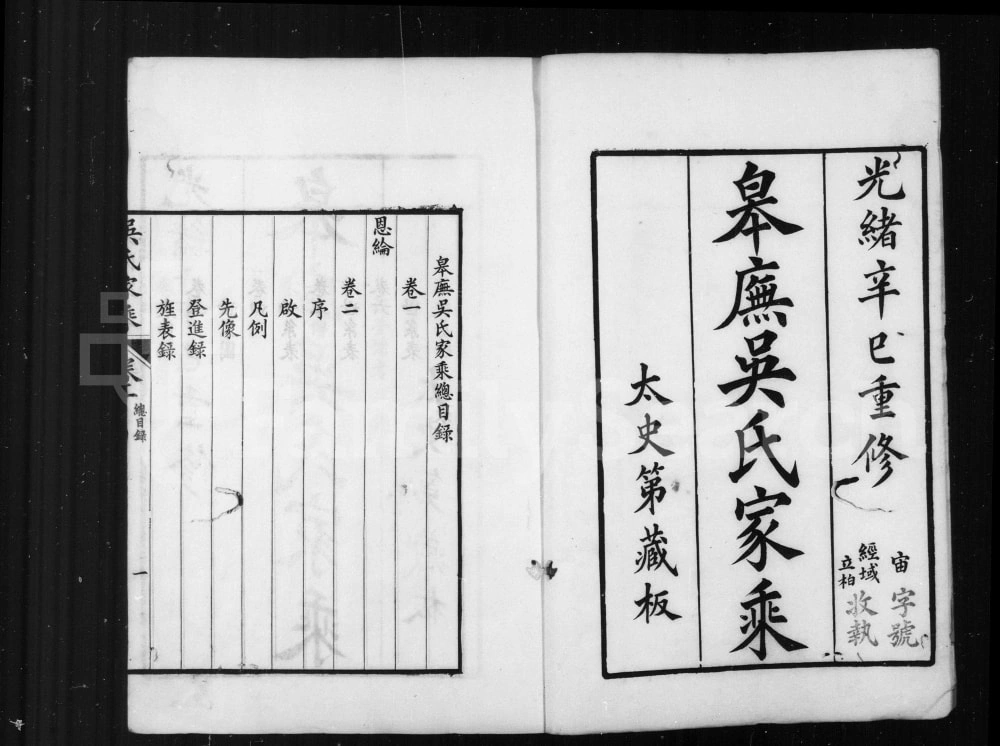 光緒辛巳重修
宙字號
經域
立柏
收執
皋廡吳氏家乘
太史第藏板
皋廡吳氏家乘總目錄
卷一
恩綸
卷二
序
啟
凡例
先像
登進錄
旌表錄
吳氏家乘
總目錄
一